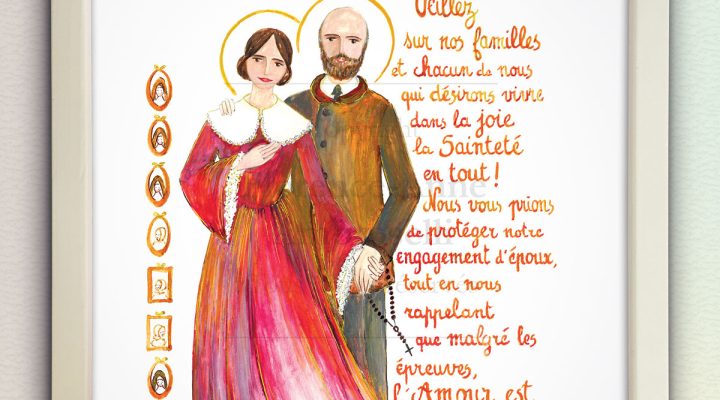 Veillez
sur nos familles
et chacun de nous
qui désirons vivre
dans la joie
la Sainteté
en tout !
Nous vous prions
de protéger notre
engagement d'époux,
tout en nous
rappelant
que malgré les
épreuves,
l'Amour est